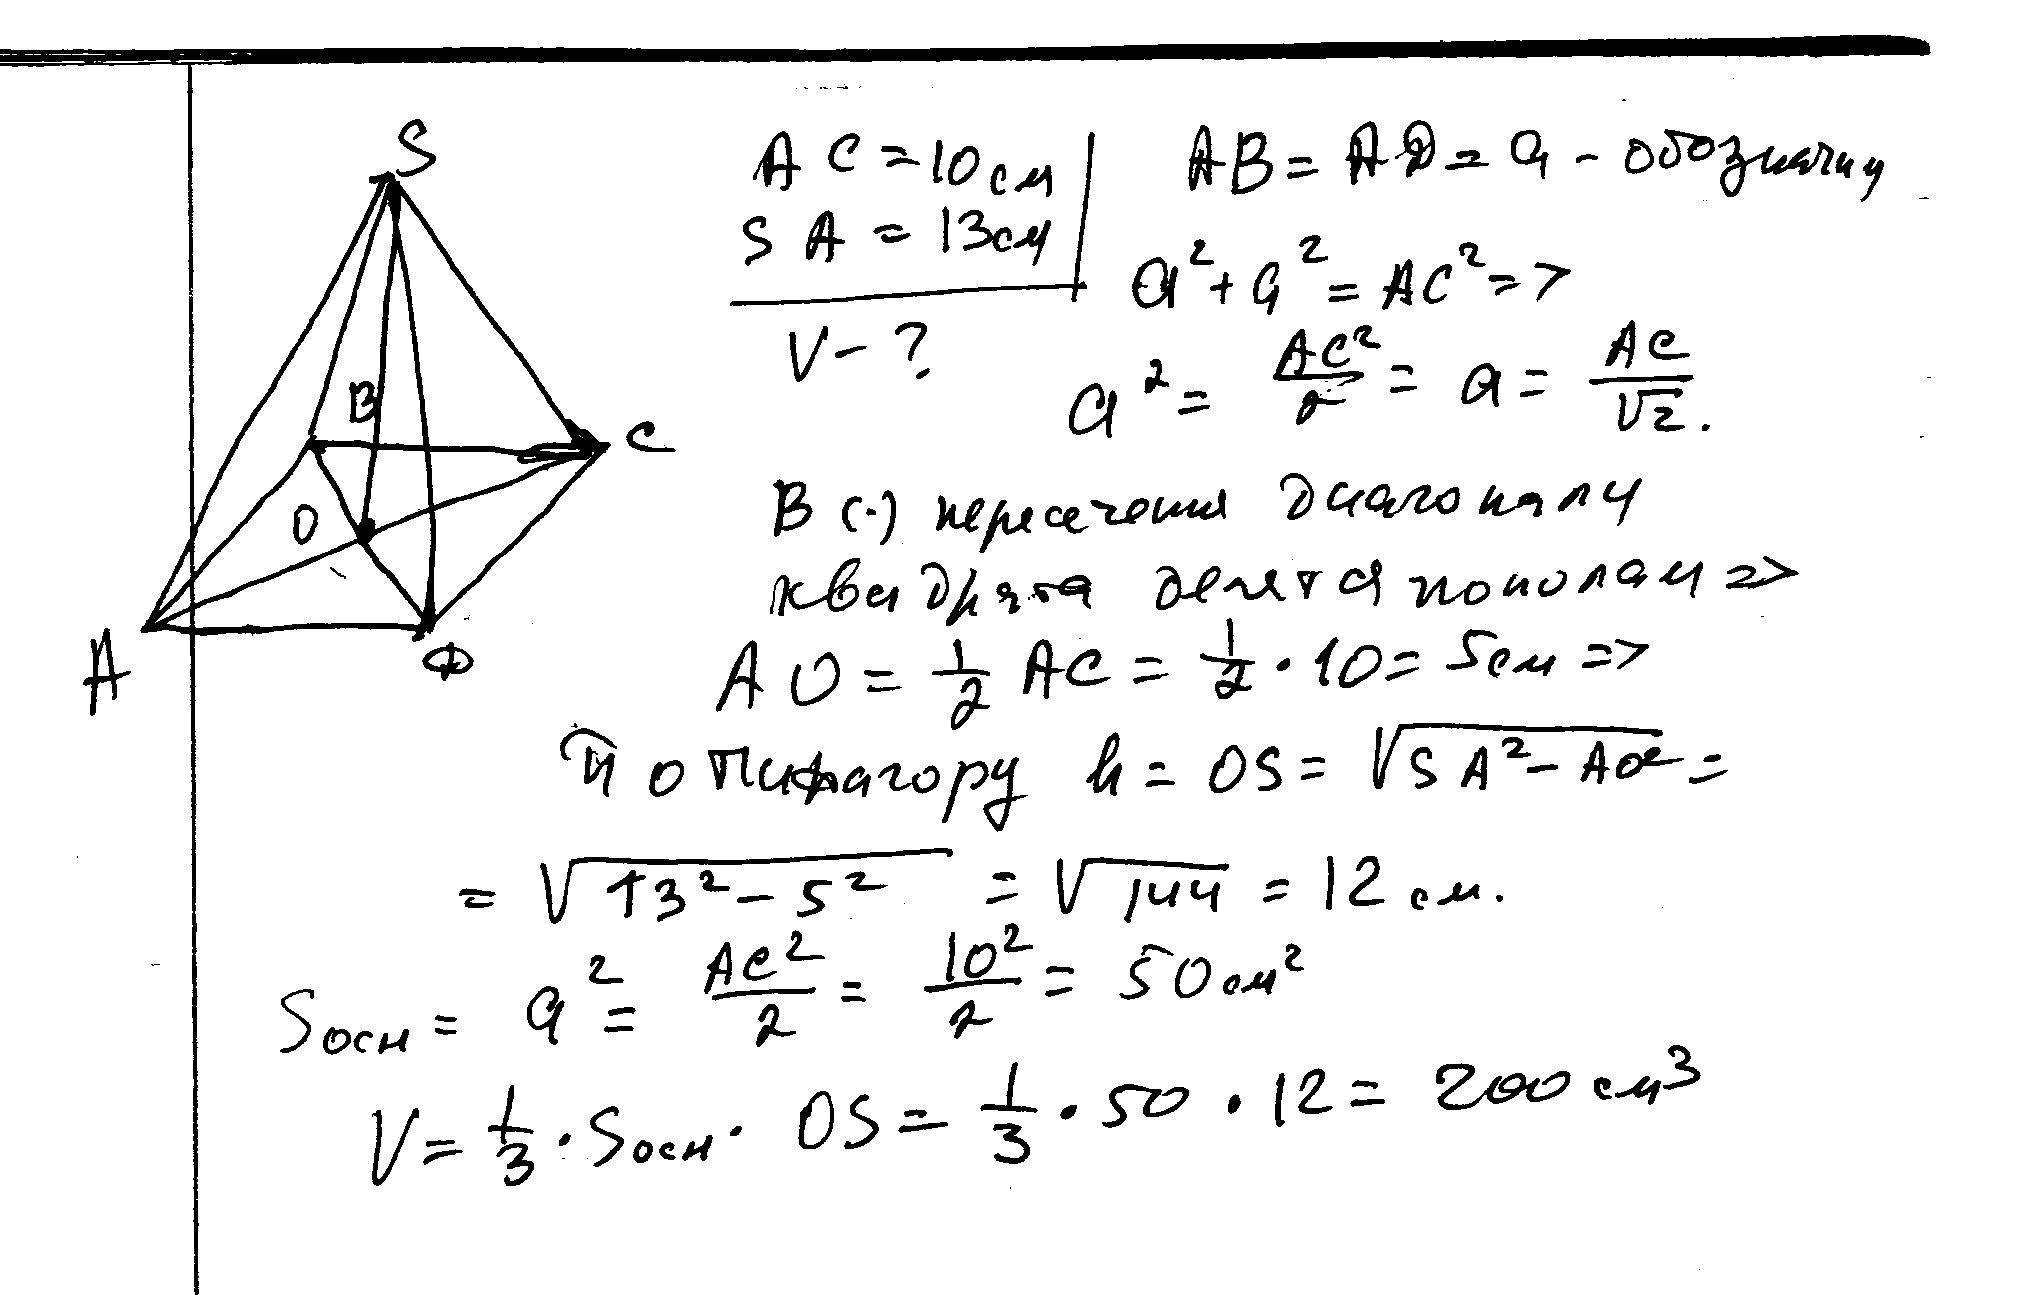 S
AC = 10 см
SA = 13 см
V - ?
B
C
O
A
D
AB = AD = a - обозначим
a² + a² = AC² =>
a² = AC²/2 = a = AC/√2.
В (·) пересечения диагонали
квадрата делятся пополам =>
AO = 1/2 AC = 1/2 · 10 = 5 см =>
По Пифагору h = OS = √SA² - AO² =
= √13² - 5² = √144 = 12 см.
Sосн = a² = AC²/2 = 10²/2 = 50 см²
V = 1/3 · Sосн · OS = 1/3 · 50 · 12 = 200 см³